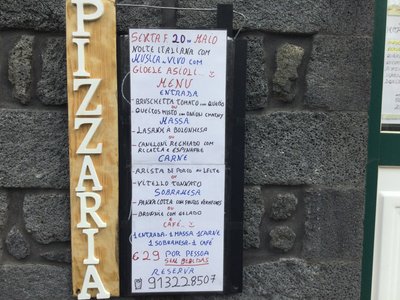 PIZZARIA
SEXTA F. 20 DE MAIO
NOITE ITALIANA COM
MUSICA AO VIVO COM
GIOELE ASCIOLI...
MENU
ENTRADA
-BRUSCHETTA TOMATO COM QUEIJO
OU
QUEIJOS MISTO COM ONION CHUTNEY
MASSA
-LASANHA A BOLONHESA
OU
-CANELONI RECHEADO COM
RICOTTA E ESPINAFRE
CARNE
-ARISTA DI PORCO AO LEITE
OU
-VITELLO TONNATO
SOBREMESA
-PANNACOTTA COM FRUTOS VERMELHOS
OU
-BROWNIE COM GELADO
E
CAFÉ...
1 ENTRADA-1 MASSA 1 CARNE
1 SOBREMESA-1 CAFÉ
€29 POR PESSOA
SEM BEBIDAS
RESERVA
913228507